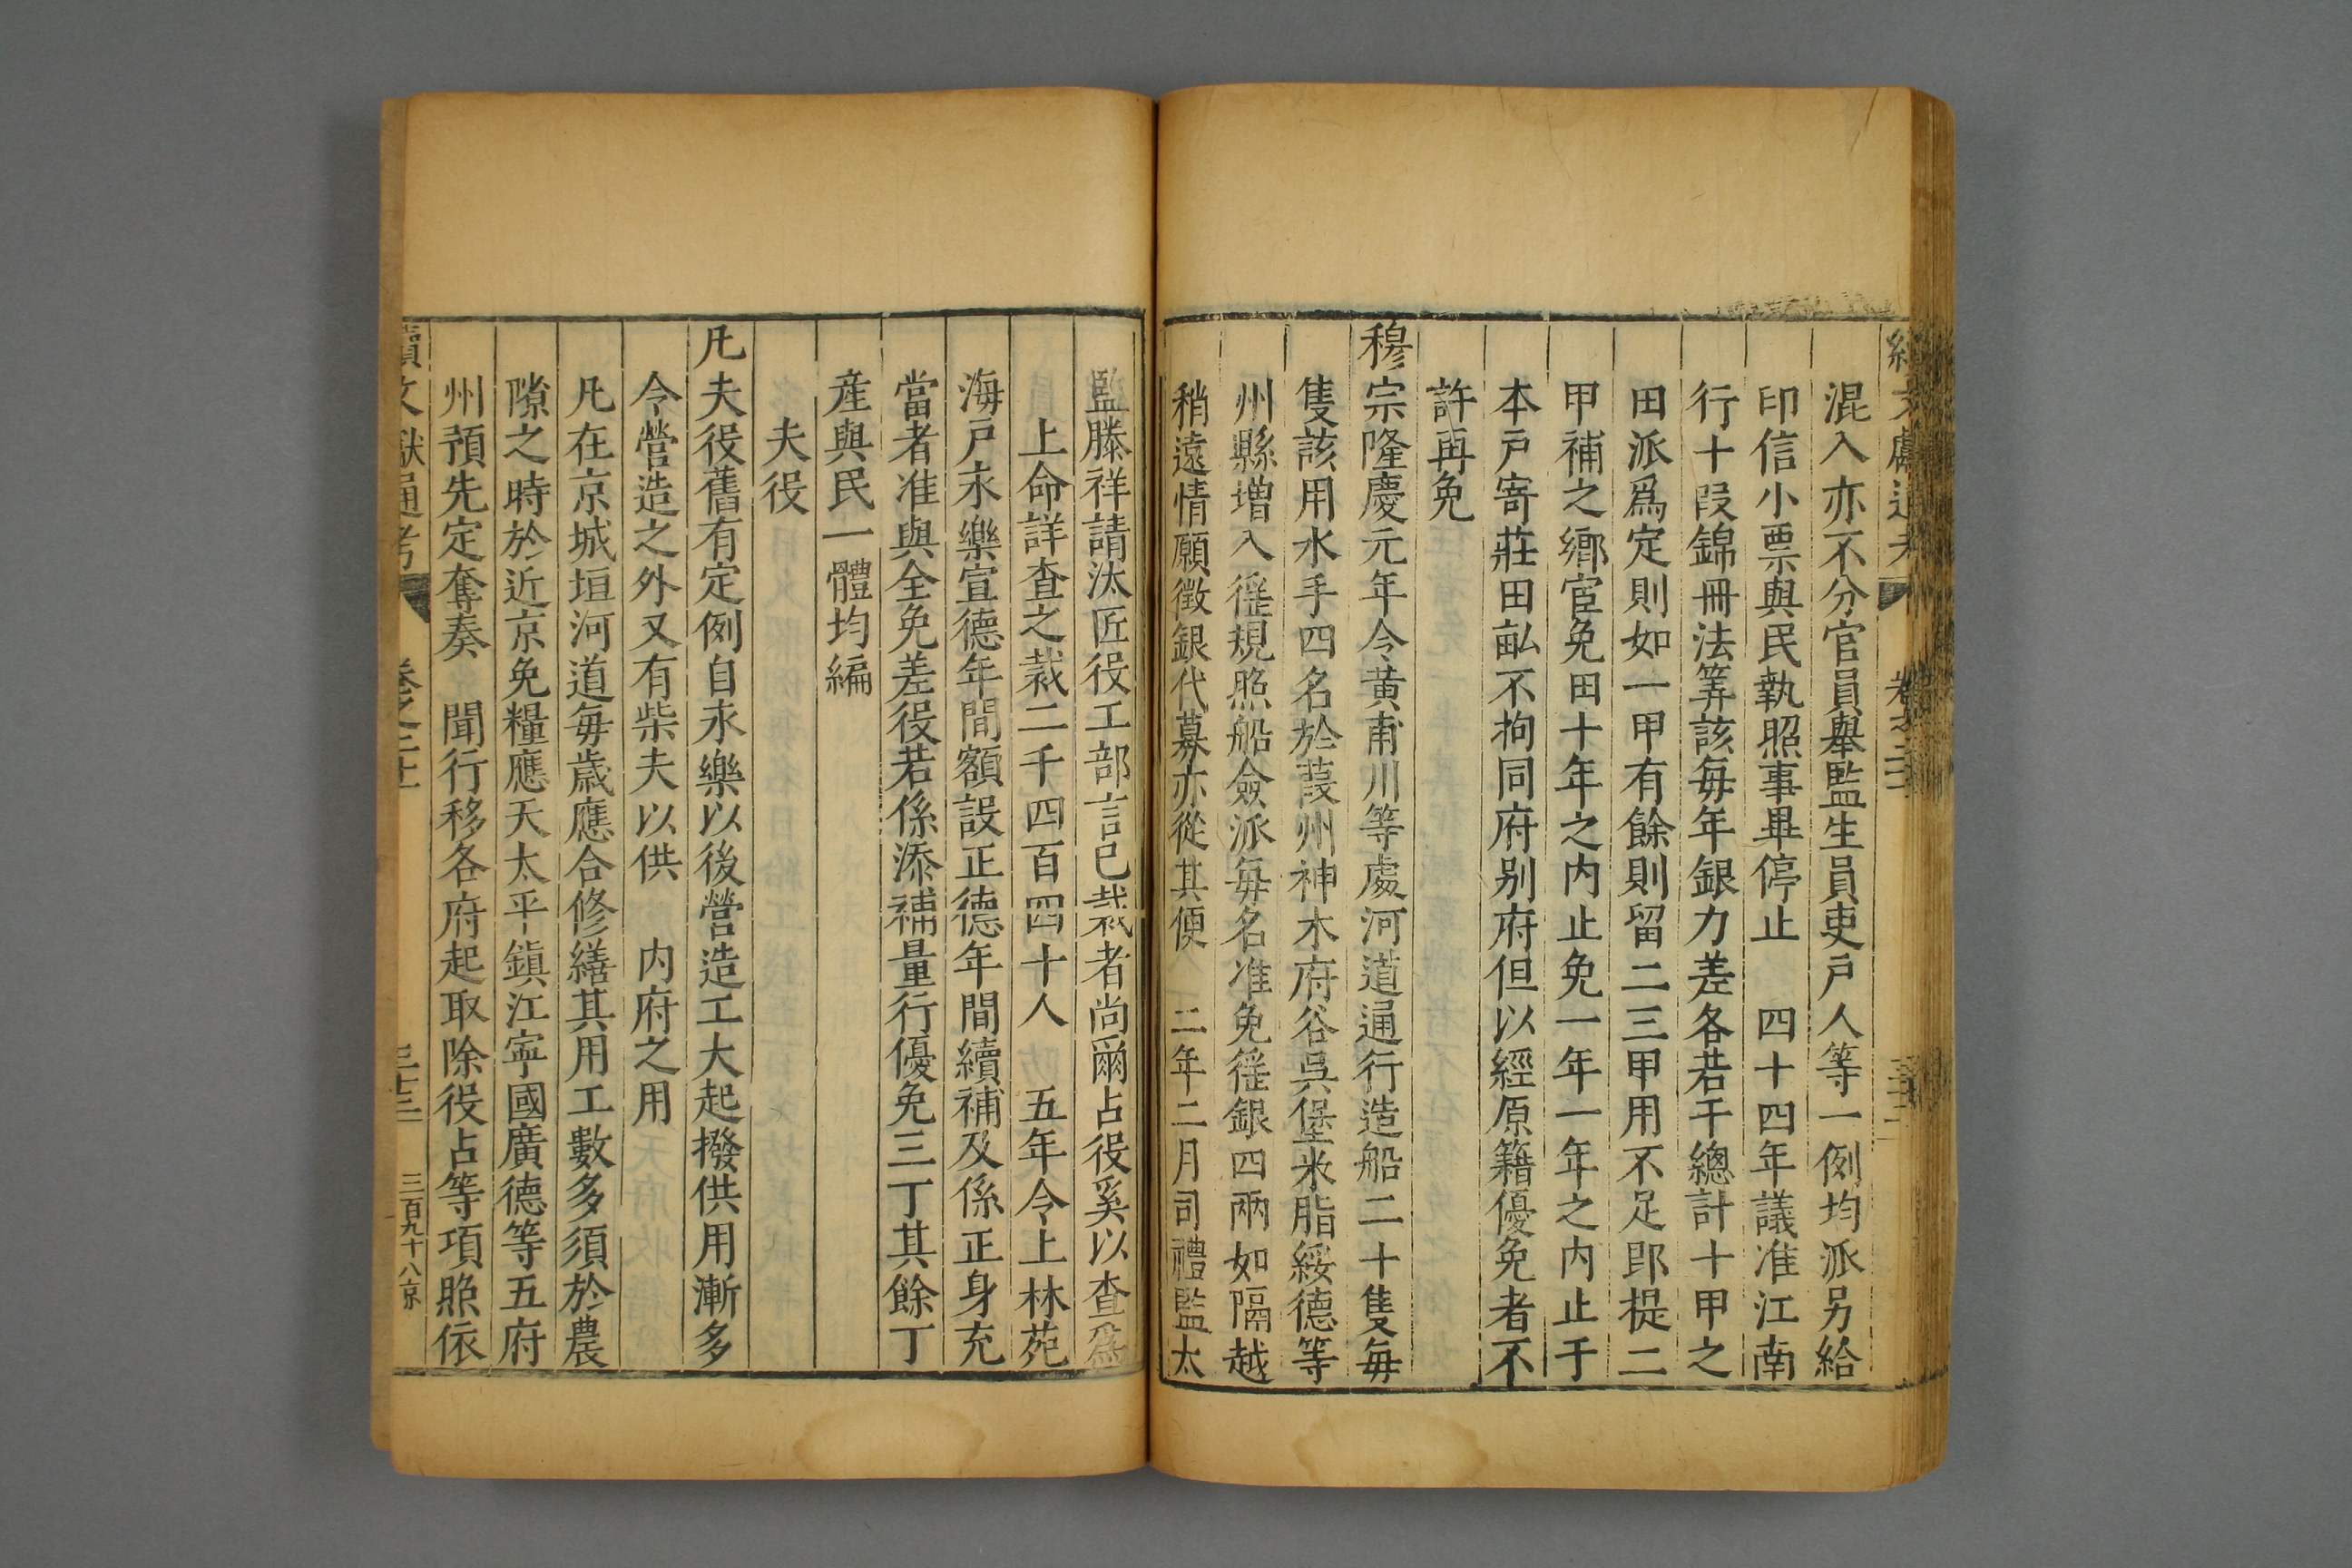 續文獻通考 卷之二十
混入亦不分官員舉監生員吏戶人等一例均派另給
印信小票與民執照事畢停止 四十四年議准江南
行十段錦冊法筭該每年銀力差各若干總計十甲之
田派爲定則如一甲有餘則留二三甲用不足即提二
甲補之鄉宦免田十年之內止免一年一年之內止于
本戶寄莊田畝不拘同府别府但以經原籍優免者不
許再免
穆宗隆慶元年令黃甫川等處河道通行造船二十隻每
隻該用水手四名於葭州神木府谷吳堡米脂綏德等
州縣增入徭規照船僉派每名准免徭銀四兩如隔越
稍遠情願徵銀代募亦從其便 二年二月司禮監太
監滕祥請汰匠役工部言已裁者尚爾占役奚以查爲
上命詳查之裁二千四百四十人 五年令上林苑
海戶永樂宣德年間額設正德年間續補及係正身充
當者准與全免差役若係添補量行優免三丁其餘丁
產與民一體均編
夫役
凡夫役舊有定例自永樂以後營造工大起撥供用漸多
今營造之外又有柴夫以供 內府之用
凡在京城垣河道每歲應合修繕其用工數多須於農
隙之時於近京免糧應天太平鎮江寧國廣德等五府
州預先定奪奏 聞行移各府起取除役占等項照依
續文獻通考 卷之二十 三十三 三百九十八京